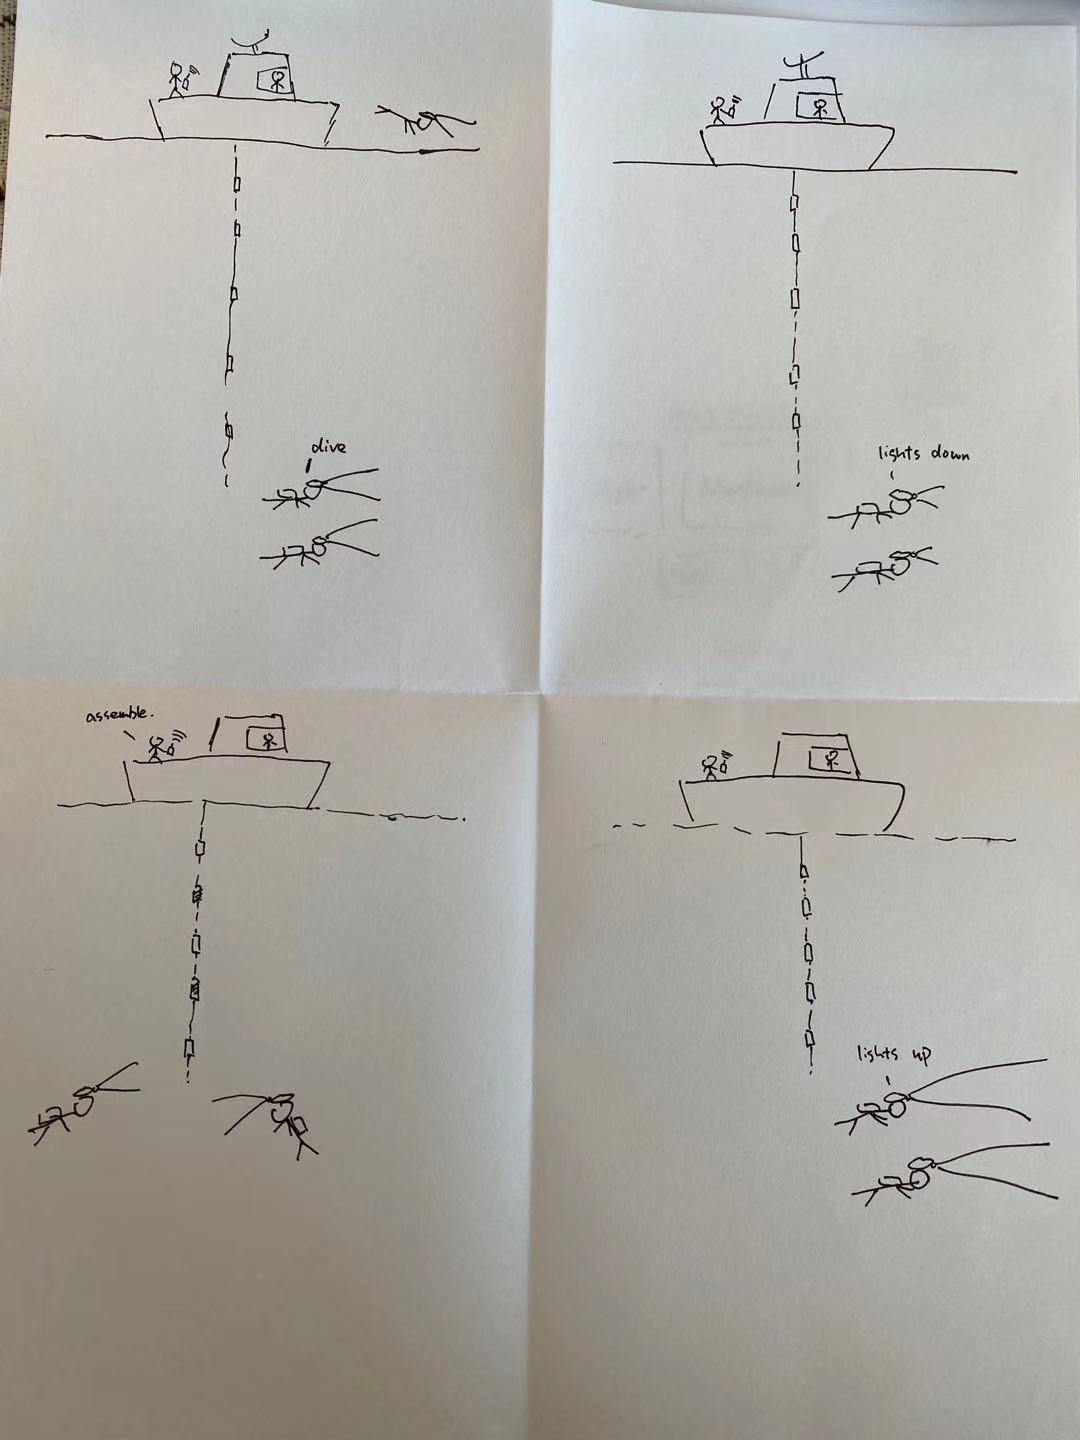 dive
lights down
assemble.
lights up